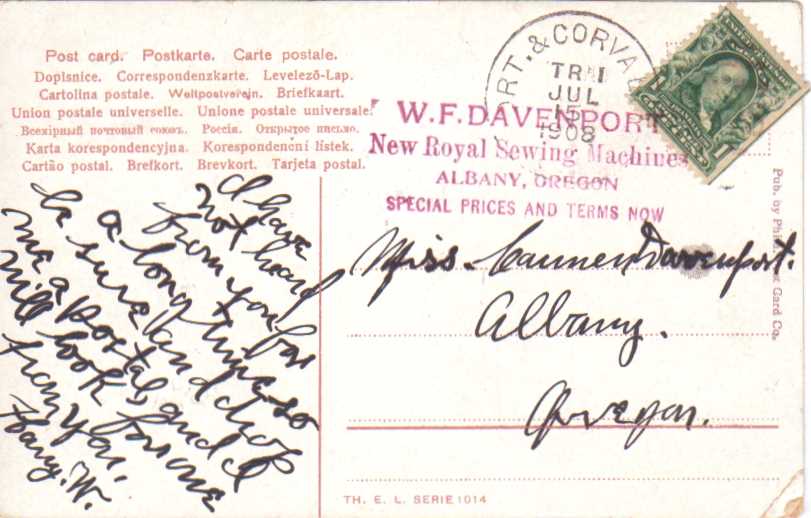 Post card. Postkarte. Carte postale.
Dopisnice. Correspondenzkarte. Levelező-Lap.
Cartolina postale. Weltpostverein. Briefkaart.
Union postale universelle. Unione postale universale.
Всемірный почтовый союзъ. Россія. Открытое письмо.
Karta korespondencyjna. Korespondenční lístek.
Cartão postal. Brefkort. Brevkort. Tarjeta postal.
ORT. & CORVA
TR 1
JUL
15
1908
W.F. DAVENPORT
New Royal Sewing Machines
ALBANY, OREGON
SPECIAL PRICES AND TERMS NOW
I have
not heard
from you for
a long time so
be sure and drop
me a postal, and I
will look for one
from you.
Harry. W.
Miss. Carmen Davenport.
Albany.
Oregon.
Pub. by Card Co.
TH. E. L. SERIE 1014